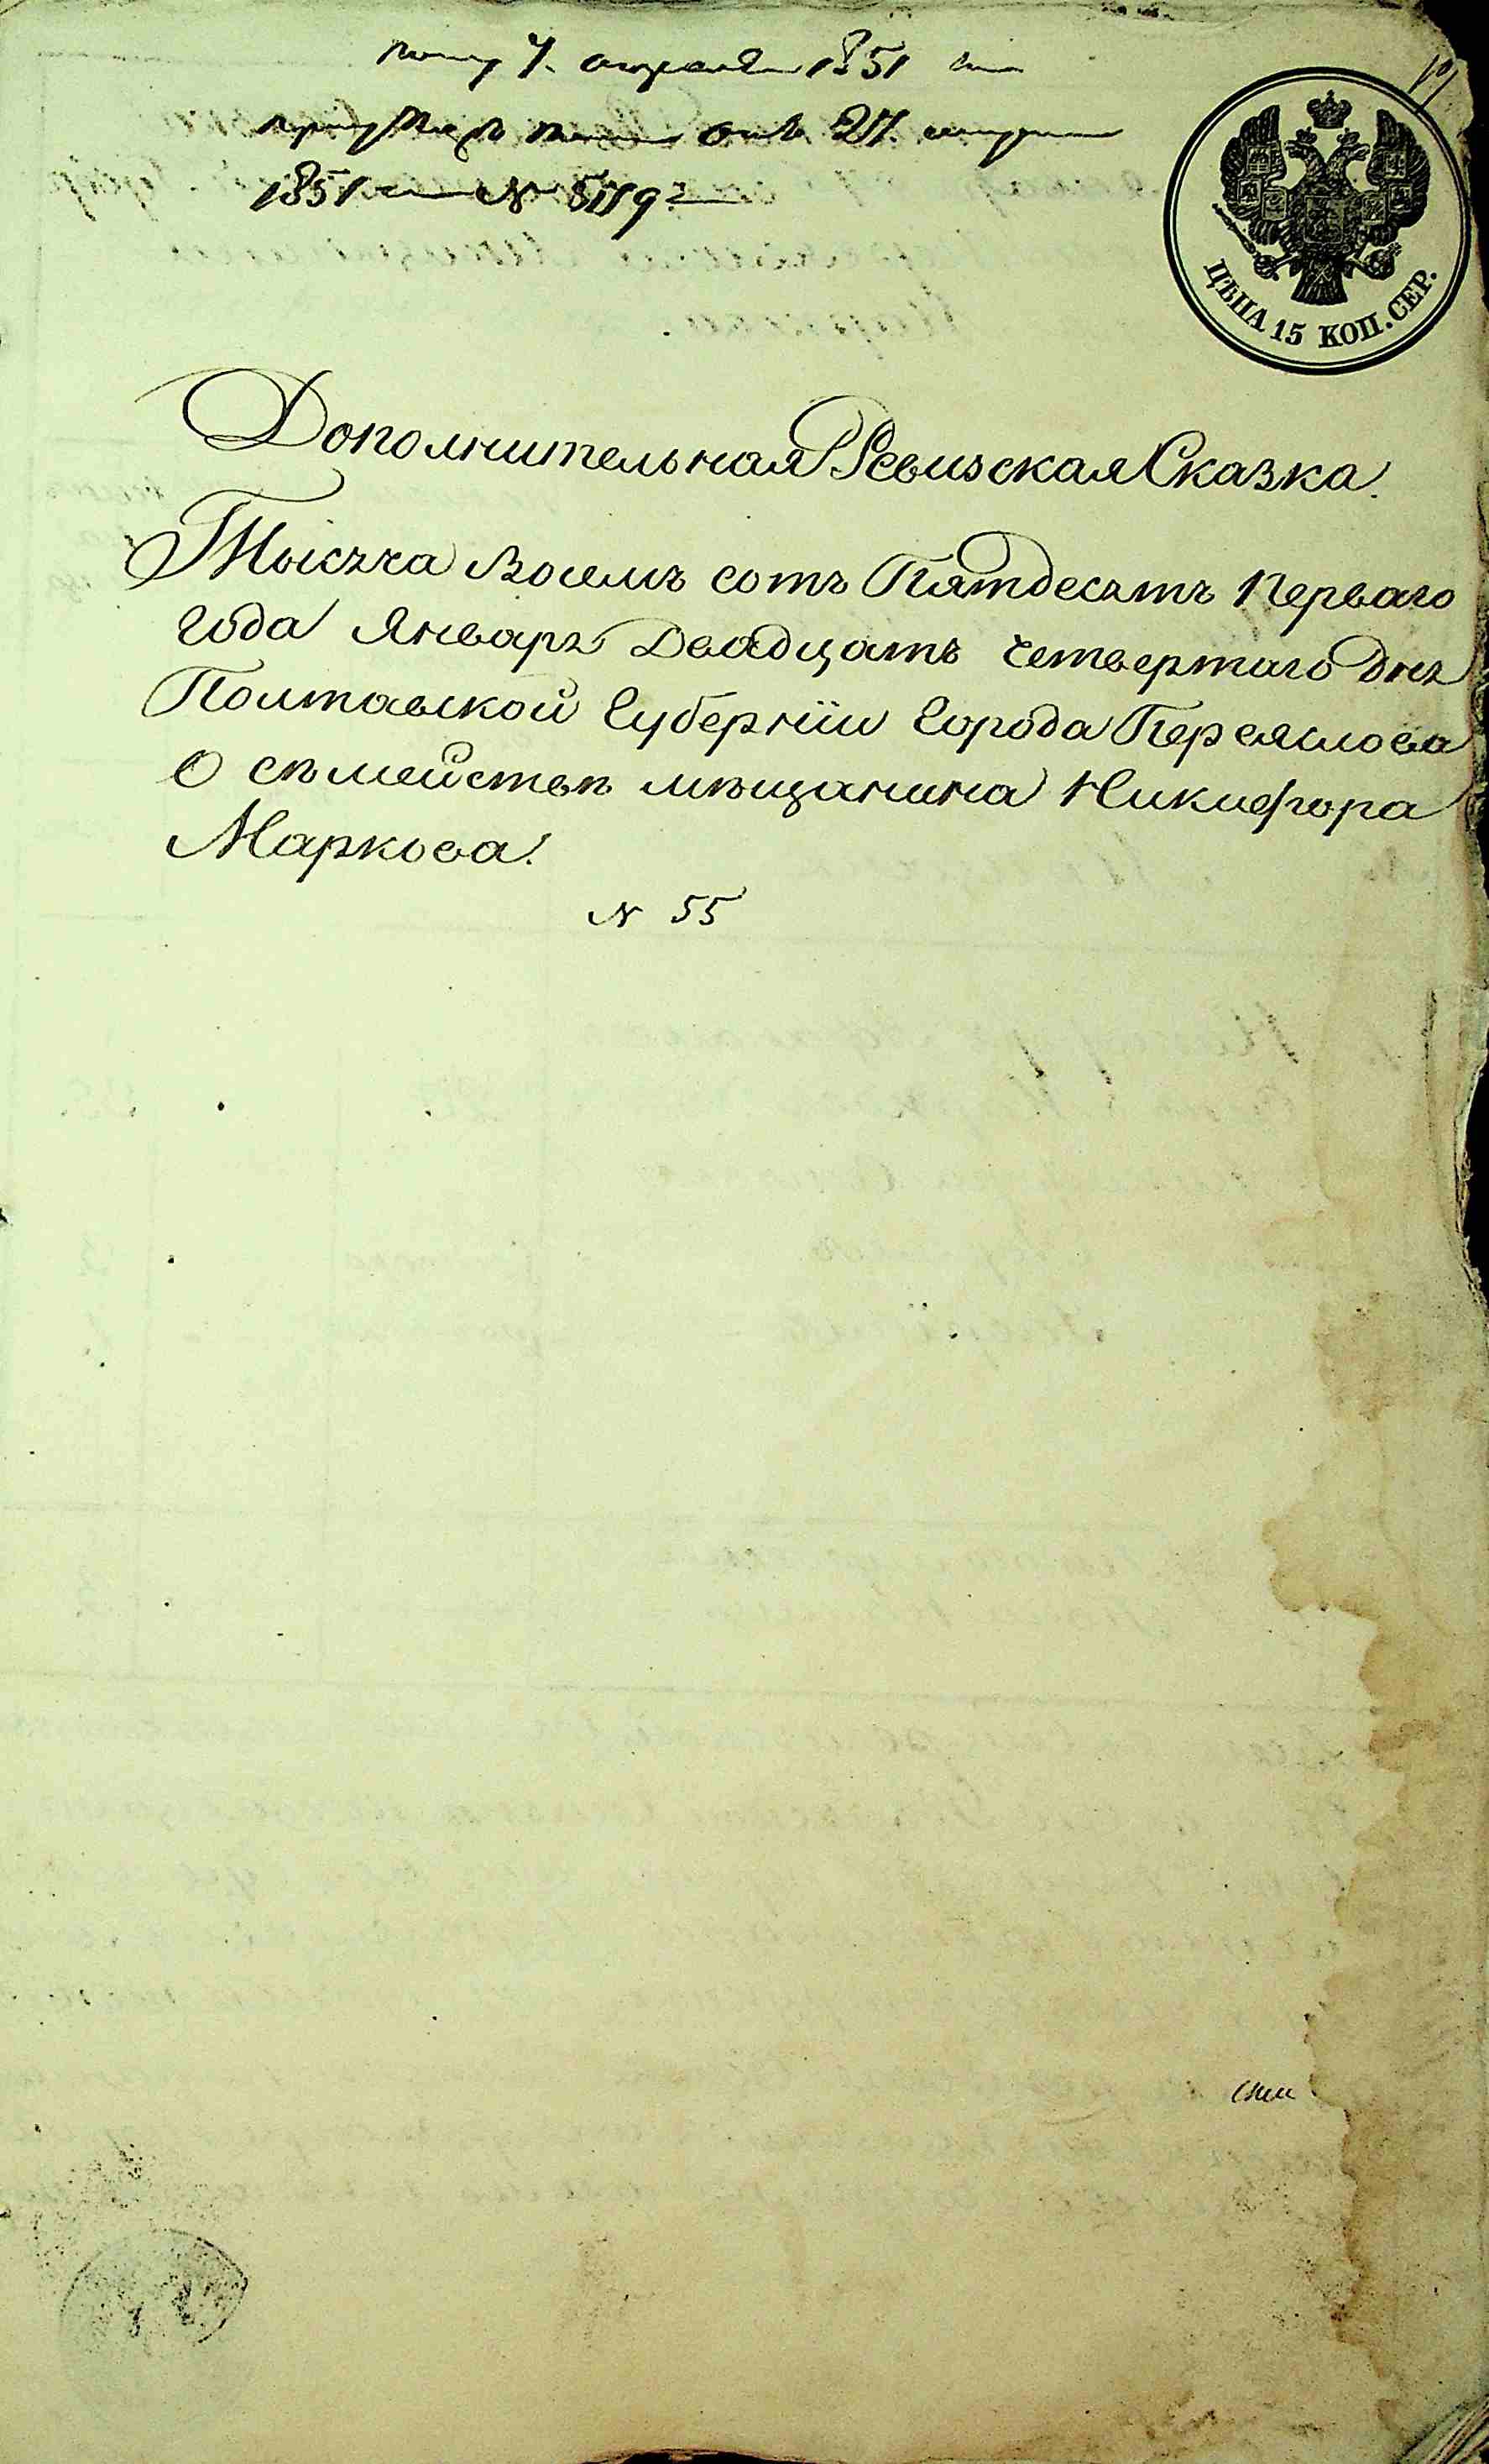 7. апреля 1851
отъ 27.
1851 № 5119
ЦѢНА 15 КОП. СЕР.
Дополнительная Ревизская Сказка.
Тысяча Восемъ сотъ Пятдесятъ Перваго
года Января Двадцать четвертаго дня
Полтавской Губернїи Города Переяслова
О сѣмействѣ мѣщанина Никифора
Маркова.
N 55